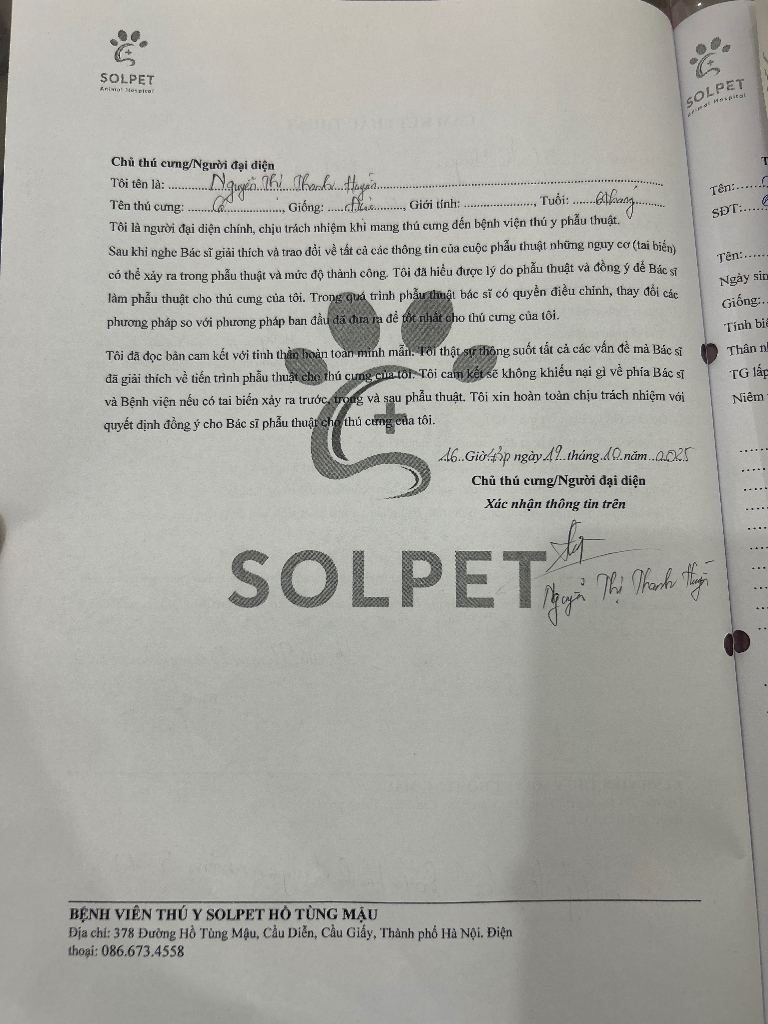 SOLPET
Animal Hospital
Chủ thú cưng/Người đại diện
Tôi tên là: Nguyễn Thị Thanh Huyền
Tên thú cưng: ........, Giống: ........, Giới tính: ........, Tuổi: ... tháng
Tôi là người đại diện chính, chịu trách nhiệm khi mang thú cưng đến bệnh viện thú y phẫu thuật.
Sau khi nghe Bác sĩ giải thích và trao đổi về tất cả các thông tin của cuộc phẫu thuật những nguy cơ (tai biến)
có thể xảy ra trong phẫu thuật và mức độ thành công. Tôi đã hiểu được lý do phẫu thuật và đồng ý để Bác sĩ
làm phẫu thuật cho thú cưng của tôi. Trong quá trình phẫu thuật bác sĩ có quyền điều chỉnh, thay đổi các
phương pháp so với phương pháp ban đầu đã đưa ra để tốt nhất cho thú cưng của tôi.
Tôi đã đọc bản cam kết với tinh thần hoàn toàn minh mẫn. Tôi thật sự thông suốt tất cả các vấn đề mà Bác sĩ
đã giải thích về tiến trình phẫu thuật cho thú cưng của tôi. Tôi cam kết sẽ không khiếu nại gì về phía Bác sĩ
và Bệnh viện nếu có tai biến xảy ra trước, trong và sau phẫu thuật. Tôi xin hoàn toàn chịu trách nhiệm với
quyết định đồng ý cho Bác sĩ phẫu thuật cho thú cưng của tôi.
16 Giờ ngày 19 tháng 10 năm 2025
Chủ thú cưng/Người đại diện
Xác nhận thông tin trên
SOLPET
Nguyễn Thị Thanh Huyền
BỆNH VIÊN THÚ Y SOLPET HỒ TÙNG MẬU
Địa chỉ: 378 Đường Hồ Tùng Mậu, Cầu Diễn, Cầu Giấy, Thành phố Hà Nội. Điện
thoại: 086.673.4558
SOLPET
Animal Hospital
Tên:
SĐT:
Tên:
Ngày sin
Giống:
Tính bi
Thân n
TG lấp
Niêm